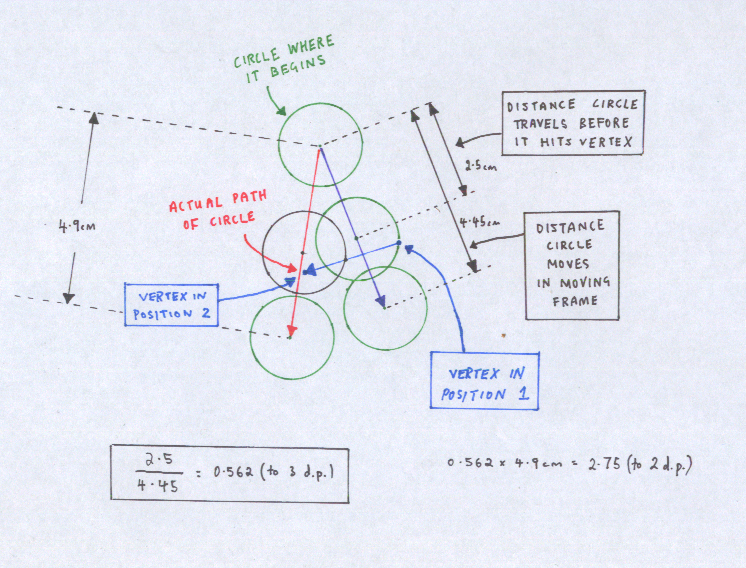 CIRCLE WHERE
IT BEGINS
DISTANCE CIRCLE
TRAVELS BEFORE
IT HITS VERTEX
2.5cm
ACTUAL PATH
OF CIRCLE
4.9cm
4.45cm
DISTANCE
CIRCLE
MOVES
IN MOVING
FRAME
VERTEX IN
POSITION 2
VERTEX IN
POSITION 1
2.5
4.45
= 0.562 (to 3 d.p.)
0.562 x 4.9cm = 2.75 (to 2 d.p.)